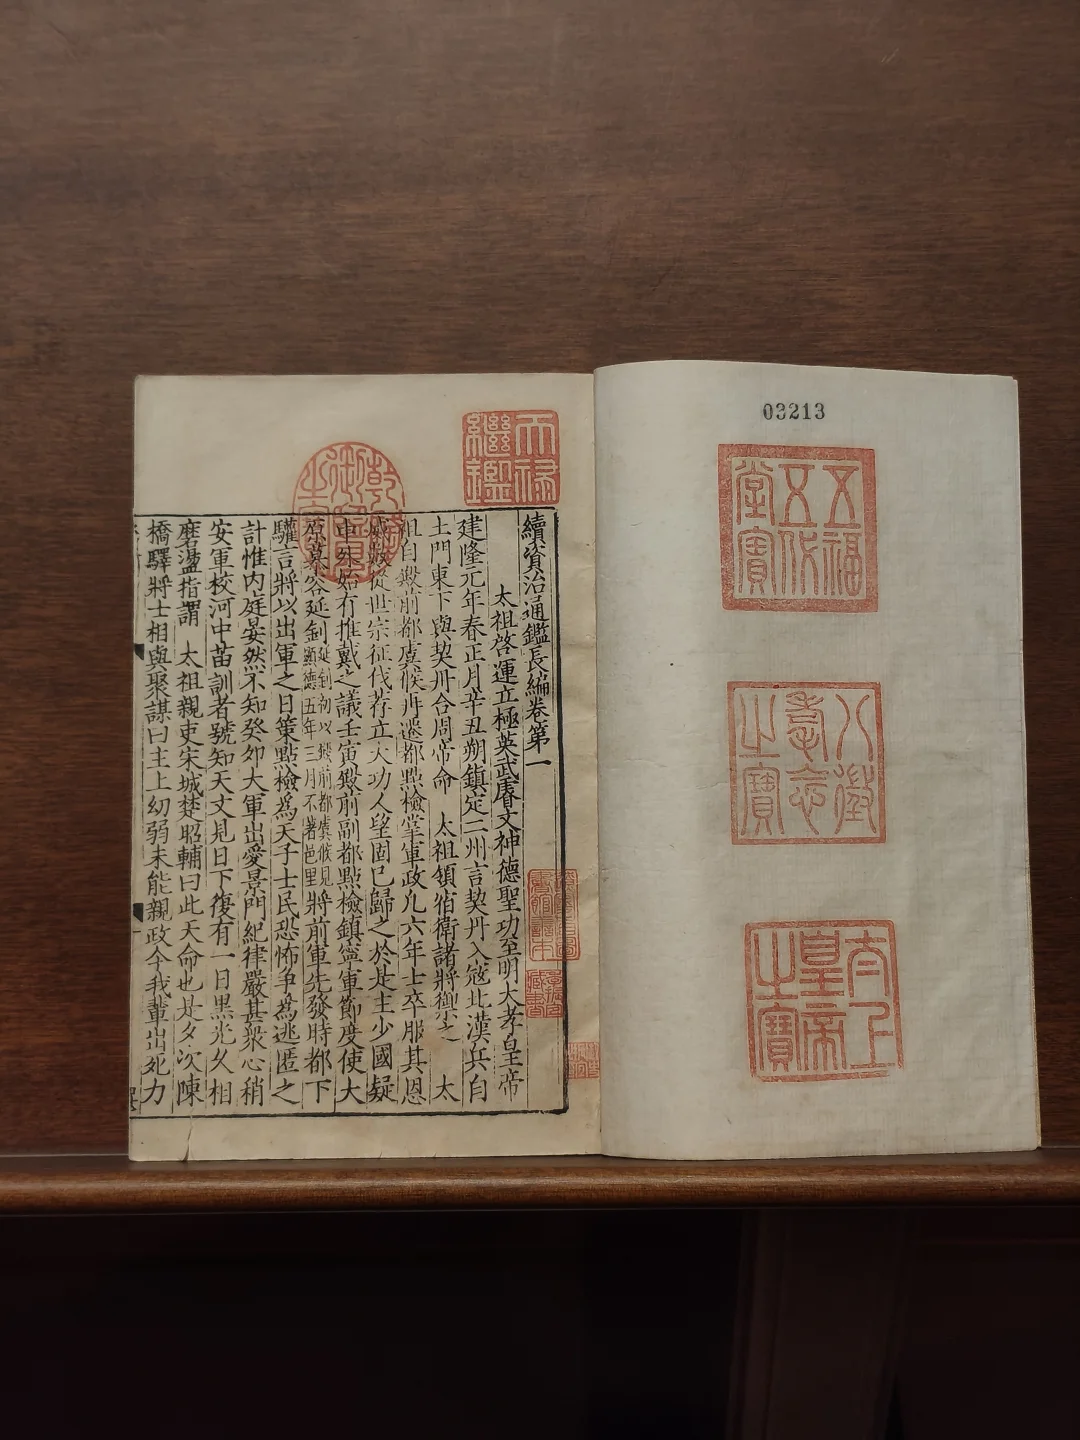 03213
五福五代堂寶
八徵耄念之寶
太上皇帝之寶
天祿繼鑑
乾隆御覽之寶
續資治通鑑長編卷第一
太祖啓運立極英武睿文神德聖功至明大孝皇帝
建隆元年春正月辛丑朔鎮定二州言契丹入寇北漢兵自
土門東下與契丹合周帝命 太祖領宿衛諸將禦之 太
祖自殿前都虞候再遷都點檢掌軍政凡六年士卒服其恩
威數從世宗征伐荐立大功人望固已歸之於是主少國疑
中外始有推戴之議壬寅殿前副都點檢鎮寧軍節度使大
原慕容延釗延釗初以殿前都虞候見顯德五年三月不著邑里將前軍先發時都下
驩言將以出軍之日策點檢為天子士民恐怖爭為逃匿之
計惟内庭晏然不知癸卯大軍出愛景門紀律嚴甚衆心稍
安軍校河中苗訓者號知天文見日下復有一日黑光久相
磨盪指謂 太祖親吏宋城楚昭輔曰此天命也是夕次陳
橋驛將士相與聚謀曰主上幼弱未能親政今我輩出死力